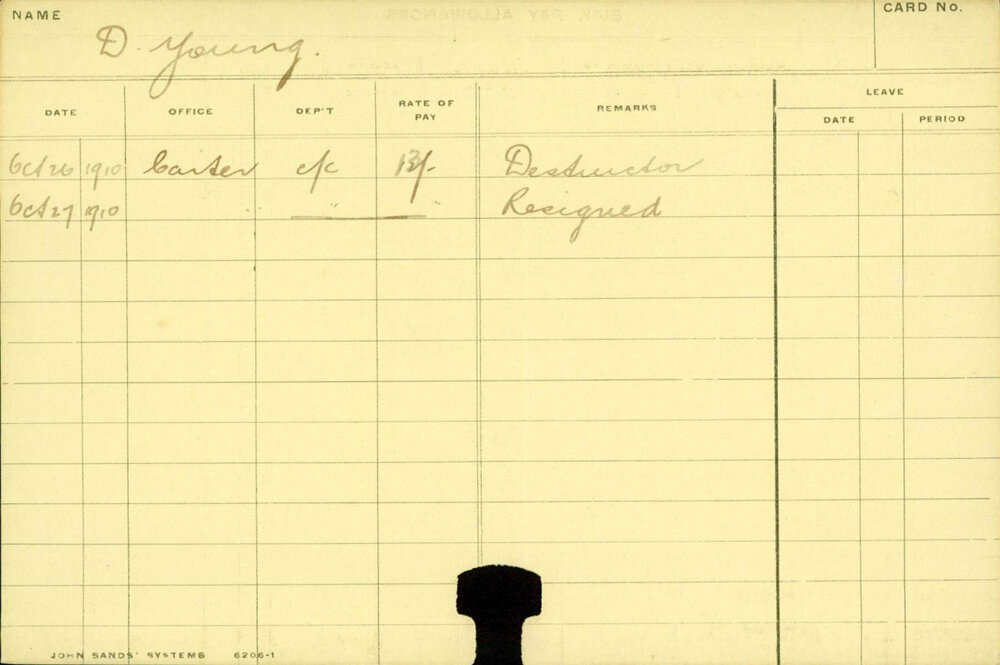 NAME
CARD NO.
D. Young.
DATE OFFICE DEP'T RATE OF PAY REMARKS LEAVE
DATE PERIOD
Oct 26 1910 Carter c/c Destructor
Oct 27 1910 " " Resigned
JOHN SANDS' SYSTEMS 6206-1